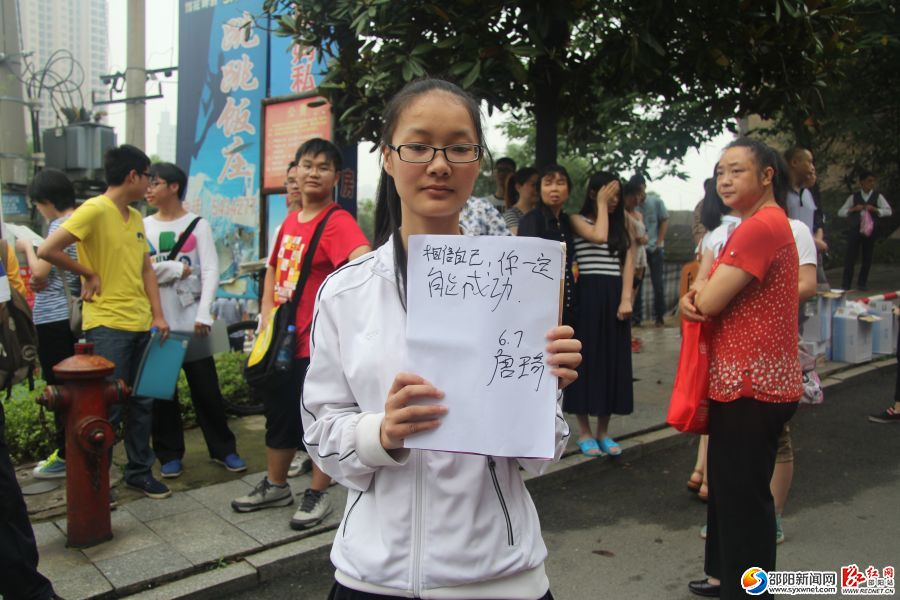 跳跳饭庄
私
房
相信自己，你一定
能成功.
6.7
唐琦
邵阳新闻网
www.syxwnet.com
红网
REDNET.CN
邵阳站